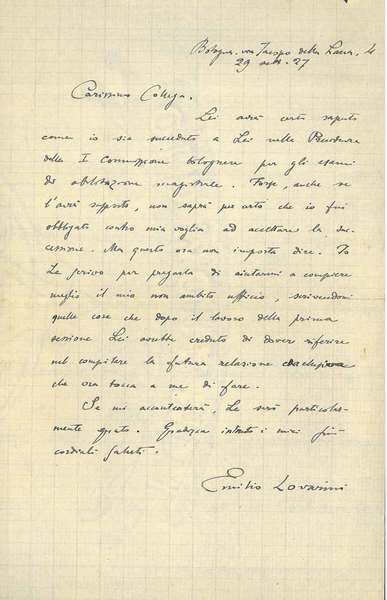 Bologna. via Jacopo della Lana, 4
29 ott. 27
Carissimo Collega.
Lei avrà certo saputo
come io sia succeduto a Lei nella Presidenza
della I Commissione bolognese per gli esami
di abilitazione magistrale. Forse, anche se
l'avrà supposto, non saprà per certo che io fui
obbligato contro mia voglia ad accettare la suc-
cessione. Ma questo ora non importa dire. Io
Le scrivo per pregarla di aiutarmi a compiere
meglio il mio non ambito ufficio, scrivendomi
quelle cose che dopo il lavoro della prima
sessione Lei avrebbe creduto di dover riferire
nel compilare la futura relazione
che ora tocca a me di fare.
Se mi accontenterà, Le sarò particolar-
mente grato. Gradisca intanto i miei più
cordiali saluti.
Emilio Lovarini